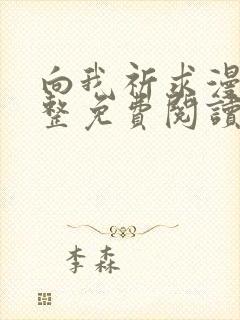 向我祈求漫
整免費閱讀
李森